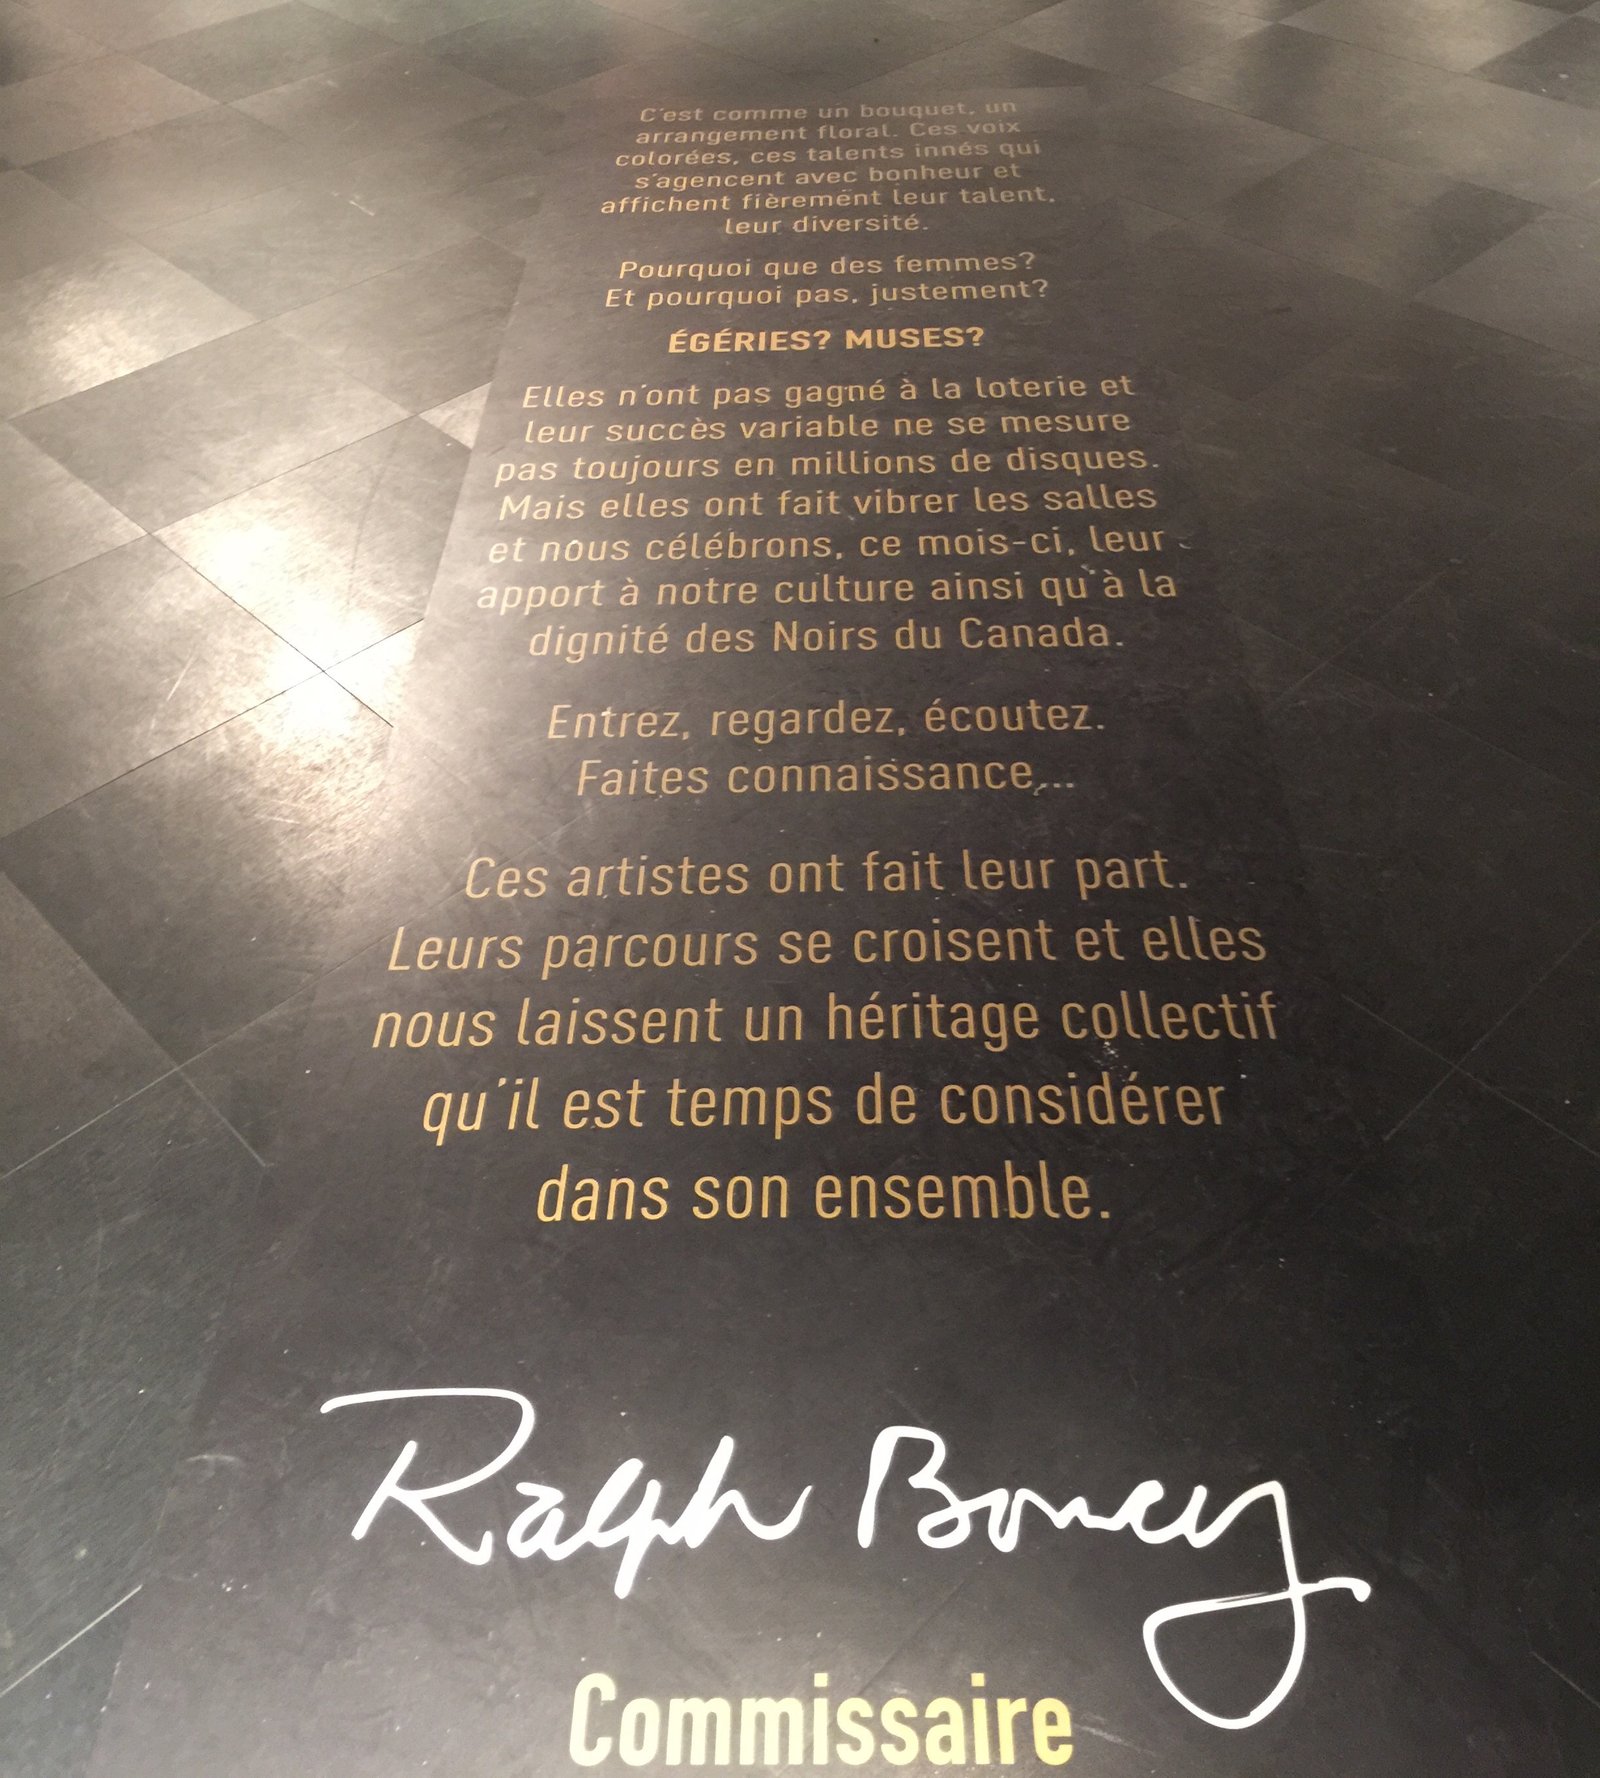 C'est comme un bouquet, un
arrangement floral. Ces voix
colorées, ces talents innés qui
s'agencent avec bonheur et
affichent fièrement leur talent,
leur diversité.
Pourquoi que des femmes?
Et pourquoi pas, justement?
ÉGÉRIES? MUSES?
Elles n'ont pas gagné à la loterie et
leur succès variable ne se mesure
pas toujours en millions de disques.
Mais elles ont fait vibrer les salles
et nous célébrons, ce mois-ci, leur
apport à notre culture ainsi qu'à la
dignité des Noirs du Canada.
Entrez, regardez, écoutez.
Faites connaissance,...
Ces artistes ont fait leur part.
Leurs parcours se croisent et elles
nous laissent un héritage collectif
qu'il est temps de considérer
dans son ensemble.
Ralph Boncy
Commissaire